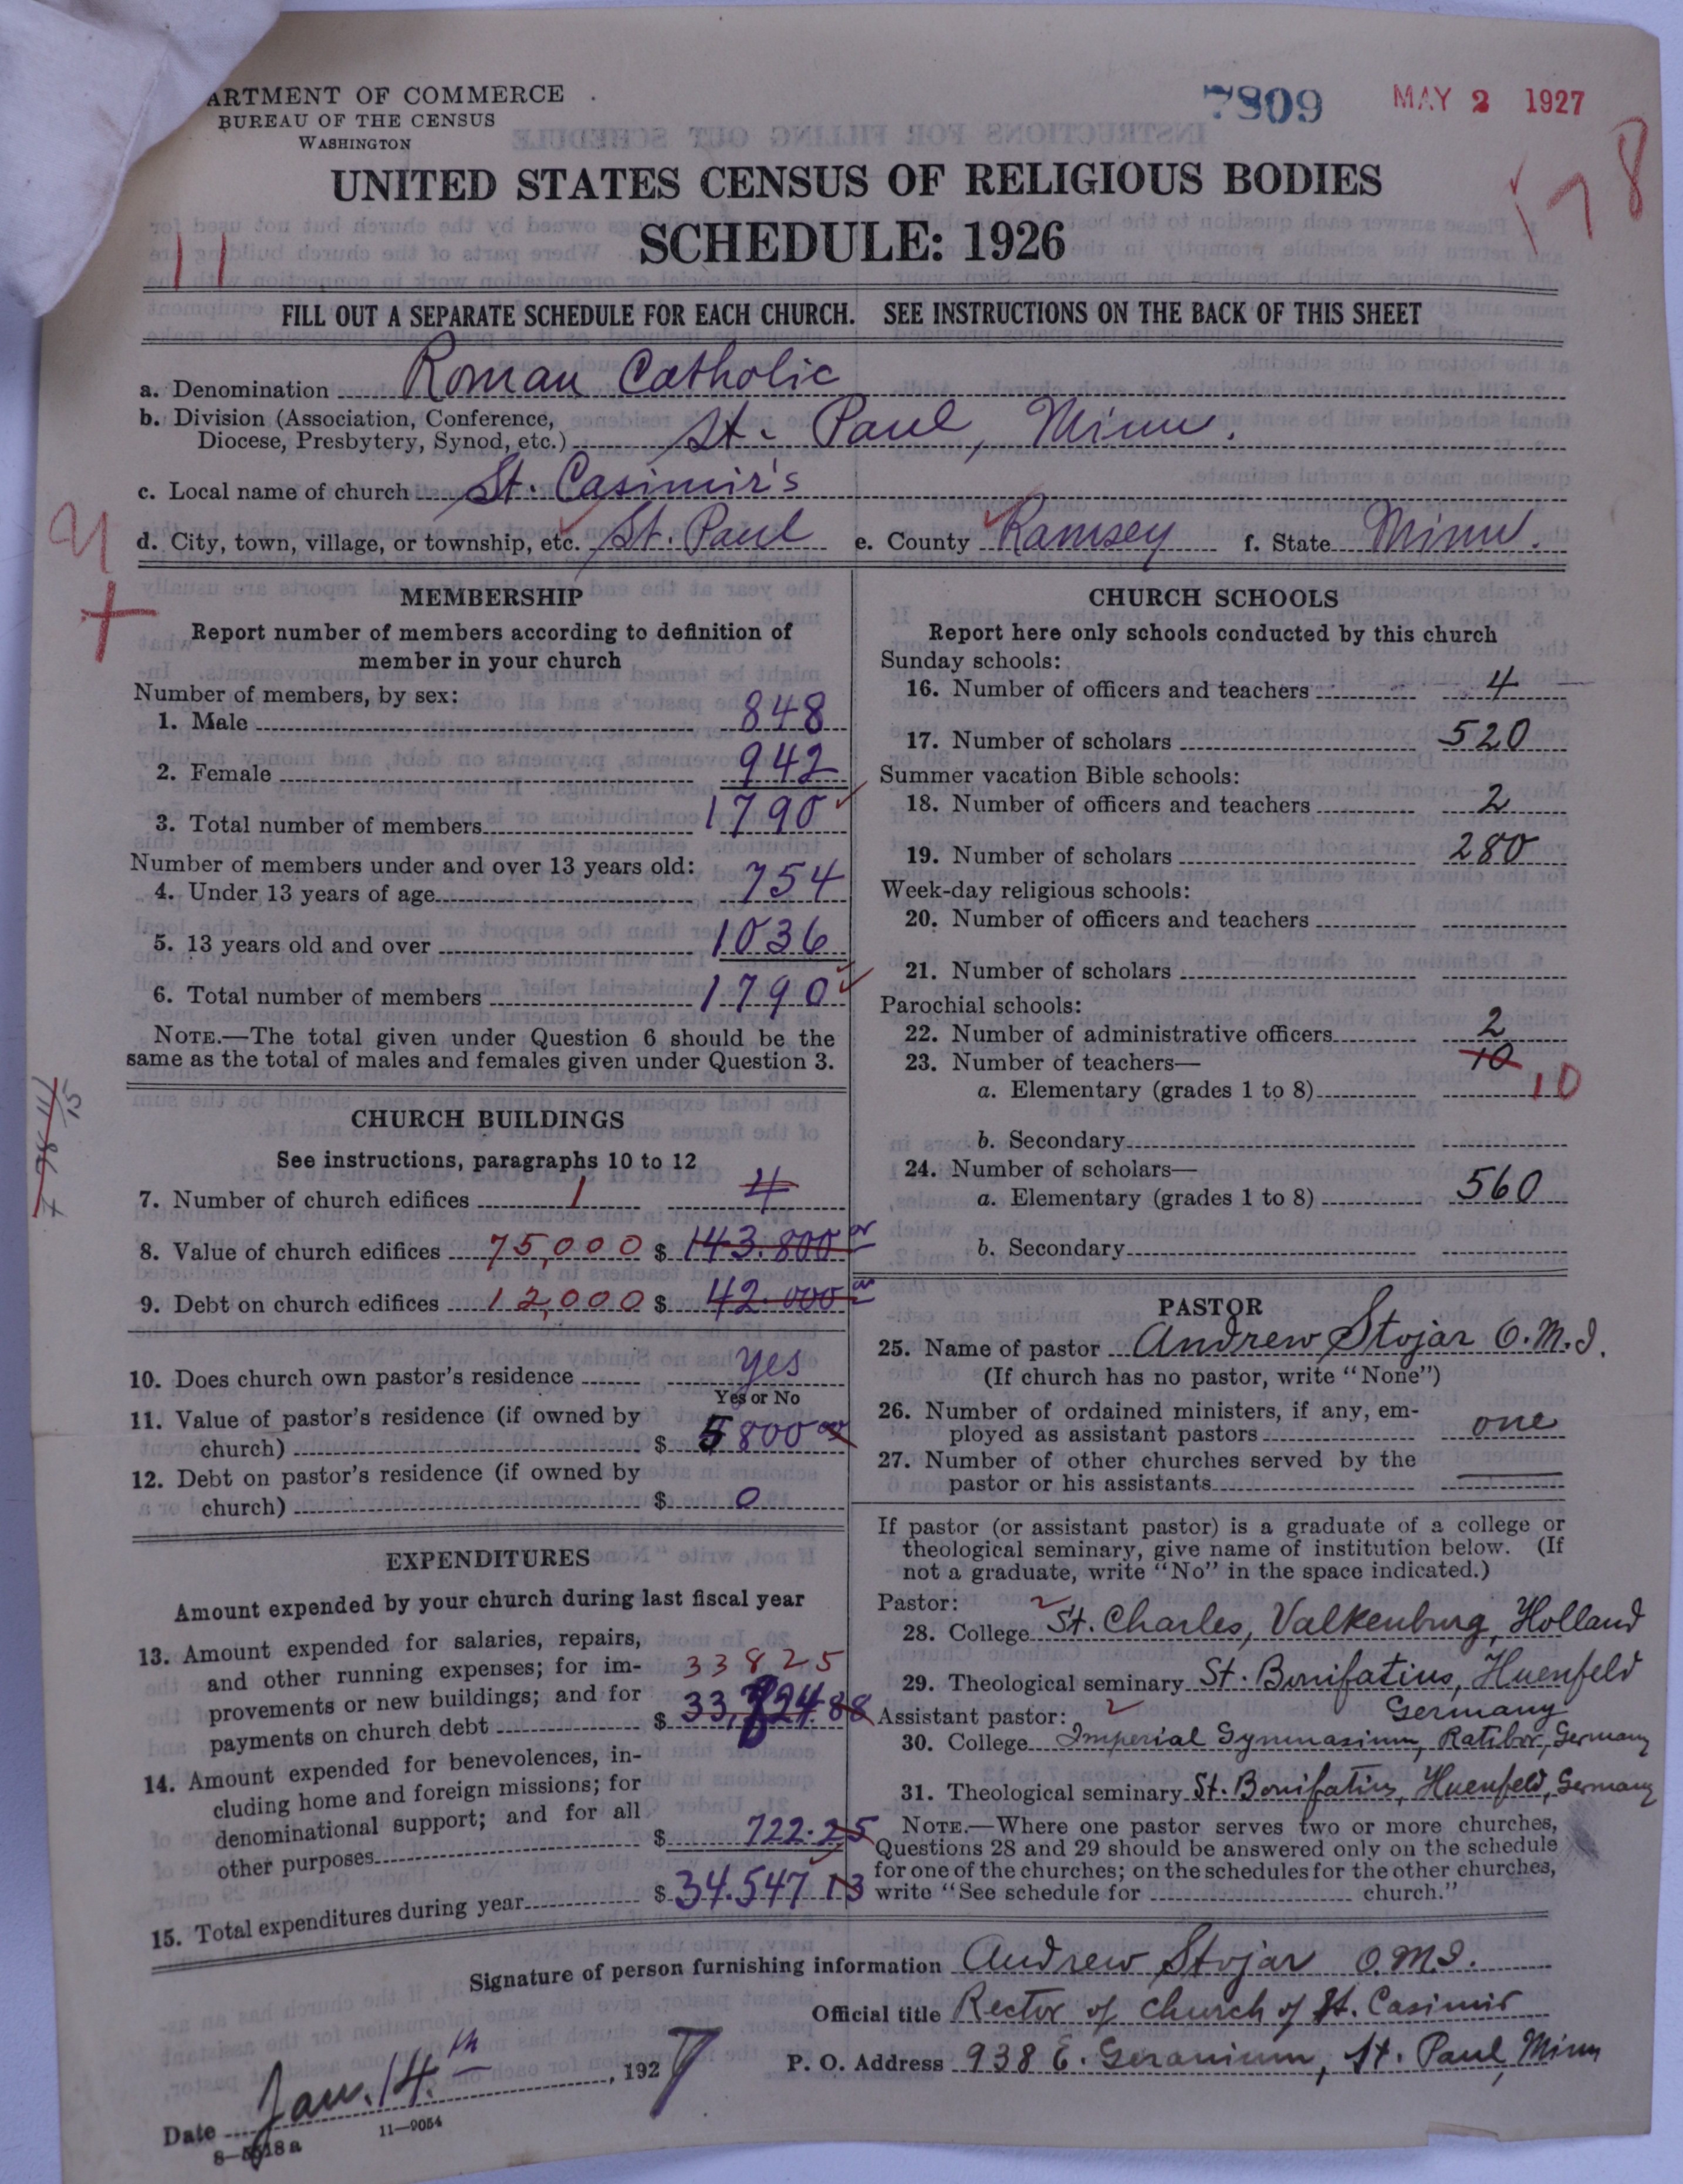 ARTMENT OF COMMERCE
BUREAU OF THE CENSUS
WASHINGTON
7809
MAY 2 1927
178
UNITED STATES CENSUS OF RELIGIOUS BODIES
SCHEDULE: 1926
11
FILL OUT A SEPARATE SCHEDULE FOR EACH CHURCH. SEE INSTRUCTIONS ON THE BACK OF THIS SHEET
a. Denomination Roman Catholic
b. Division (Association, Conference,
Diocese, Presbytery, Synod, etc.) St. Paul, Minn.
c. Local name of church St. Casimir's
d. City, town, village, or township, etc. St. Paul e. County Ramsey f. State Minn.
MEMBERSHIP
Report number of members according to definition of
member in your church
Number of members, by sex:
1. Male 848
2. Female 942
3. Total number of members 1790
Number of members under and over 13 years old:
4. Under 13 years of age 754
5. 13 years old and over 1036
6. Total number of members 1790
NOTE.—The total given under Question 6 should be the
same as the total of males and females given under Question 3.
CHURCH BUILDINGS
See instructions, paragraphs 10 to 12
7. Number of church edifices 1 4
8. Value of church edifices 75,000 $ 143.800 00
9. Debt on church edifices 12,000 $ 42.000 00
10. Does church own pastor's residence yes
Yes or No
11. Value of pastor's residence (if owned by
church) $ 5800 00
12. Debt on pastor's residence (if owned by
church) $ 0
EXPENDITURES
Amount expended by your church during last fiscal year
13. Amount expended for salaries, repairs,
and other running expenses; for im- 33825
provements or new buildings; and for
payments on church debt $ 33,824.88
14. Amount expended for benevolences, in-
cluding home and foreign missions; for
denominational support; and for all
other purposes $ 722.25
15. Total expenditures during year $ 34.547 13
CHURCH SCHOOLS
Report here only schools conducted by this church
Sunday schools:
16. Number of officers and teachers 4
17. Number of scholars 520
Summer vacation Bible schools:
18. Number of officers and teachers 2
19. Number of scholars 280
Week-day religious schools:
20. Number of officers and teachers
21. Number of scholars
Parochial schools:
22. Number of administrative officers 2
23. Number of teachers— 10
a. Elementary (grades 1 to 8) 10
b. Secondary
24. Number of scholars—
a. Elementary (grades 1 to 8) 560
b. Secondary
PASTOR
25. Name of pastor Andrew Stojar O.M.I.
(If church has no pastor, write "None")
26. Number of ordained ministers, if any, em-
ployed as assistant pastors one
27. Number of other churches served by the
pastor or his assistants
If pastor (or assistant pastor) is a graduate of a college or
theological seminary, give name of institution below. (If
not a graduate, write "No" in the space indicated.)
Pastor:
28. College St. Charles, Valkenburg, Holland
29. Theological seminary St. Bonifatius, Huenfeld
Germany
Assistant pastor:
30. College Imperial Gymnasium, Ratibor, Germany
31. Theological seminary St. Bonifatius, Huenfeld, Germany
NOTE.—Where one pastor serves two or more churches,
Questions 28 and 29 should be answered only on the schedule
for one of the churches; on the schedules for the other churches,
write "See schedule for church."
Signature of person furnishing information Andrew Stojar O.M.I.
Official title Rector of church of St. Casimir
P. O. Address 938 E. Geranium, St. Paul, Minn
Date Jan. 14th, 1927
11—9054